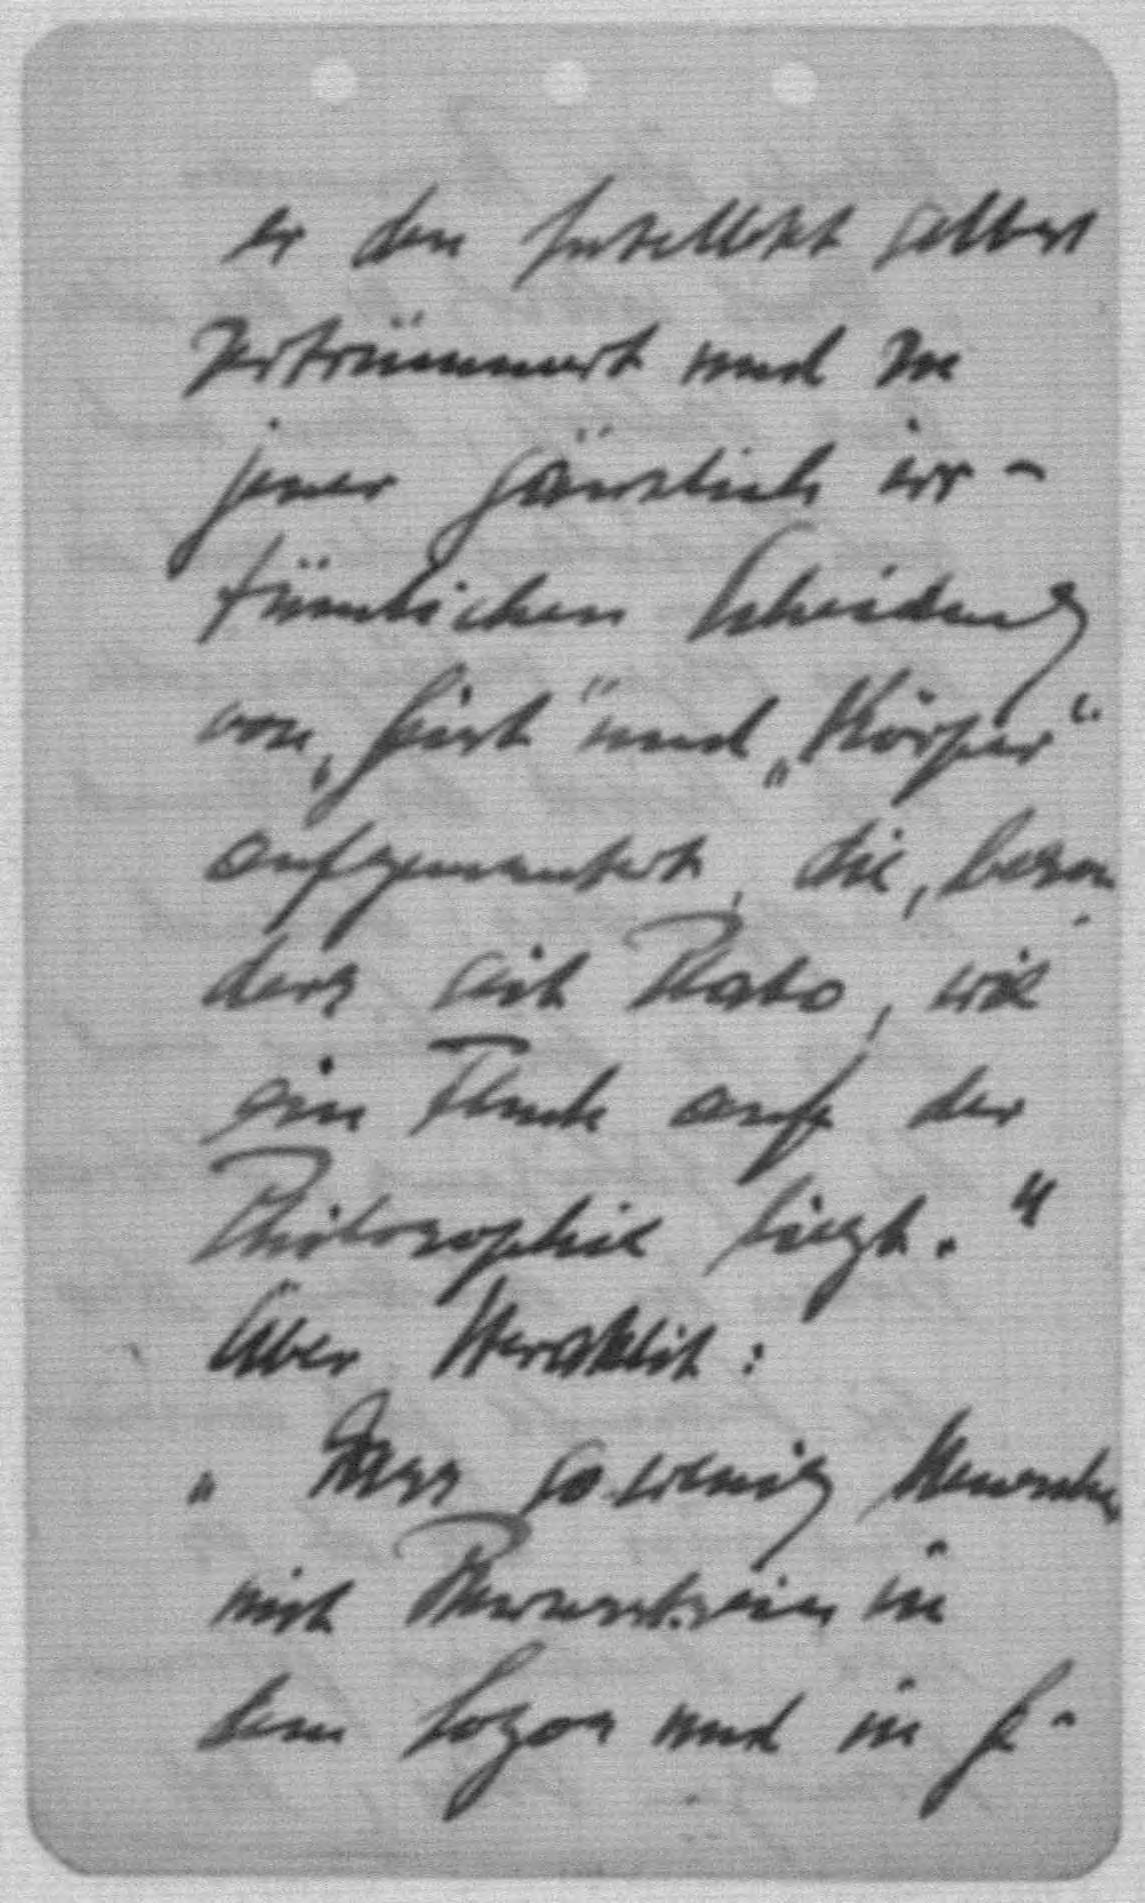 er den Intellekt selbst
zertrümmert und zu
jener gänzlich irr-
tümlichen Scheidung
von „Geist" und „Körper"
aufgemuntert, die, beson-
ders seit Plato, wie
ein Fluch auf der
Philosophie liegt."
Über Heraklit:
„Dass so wenig Menschen
mit Bewusstsein in
dem Logos und in G-